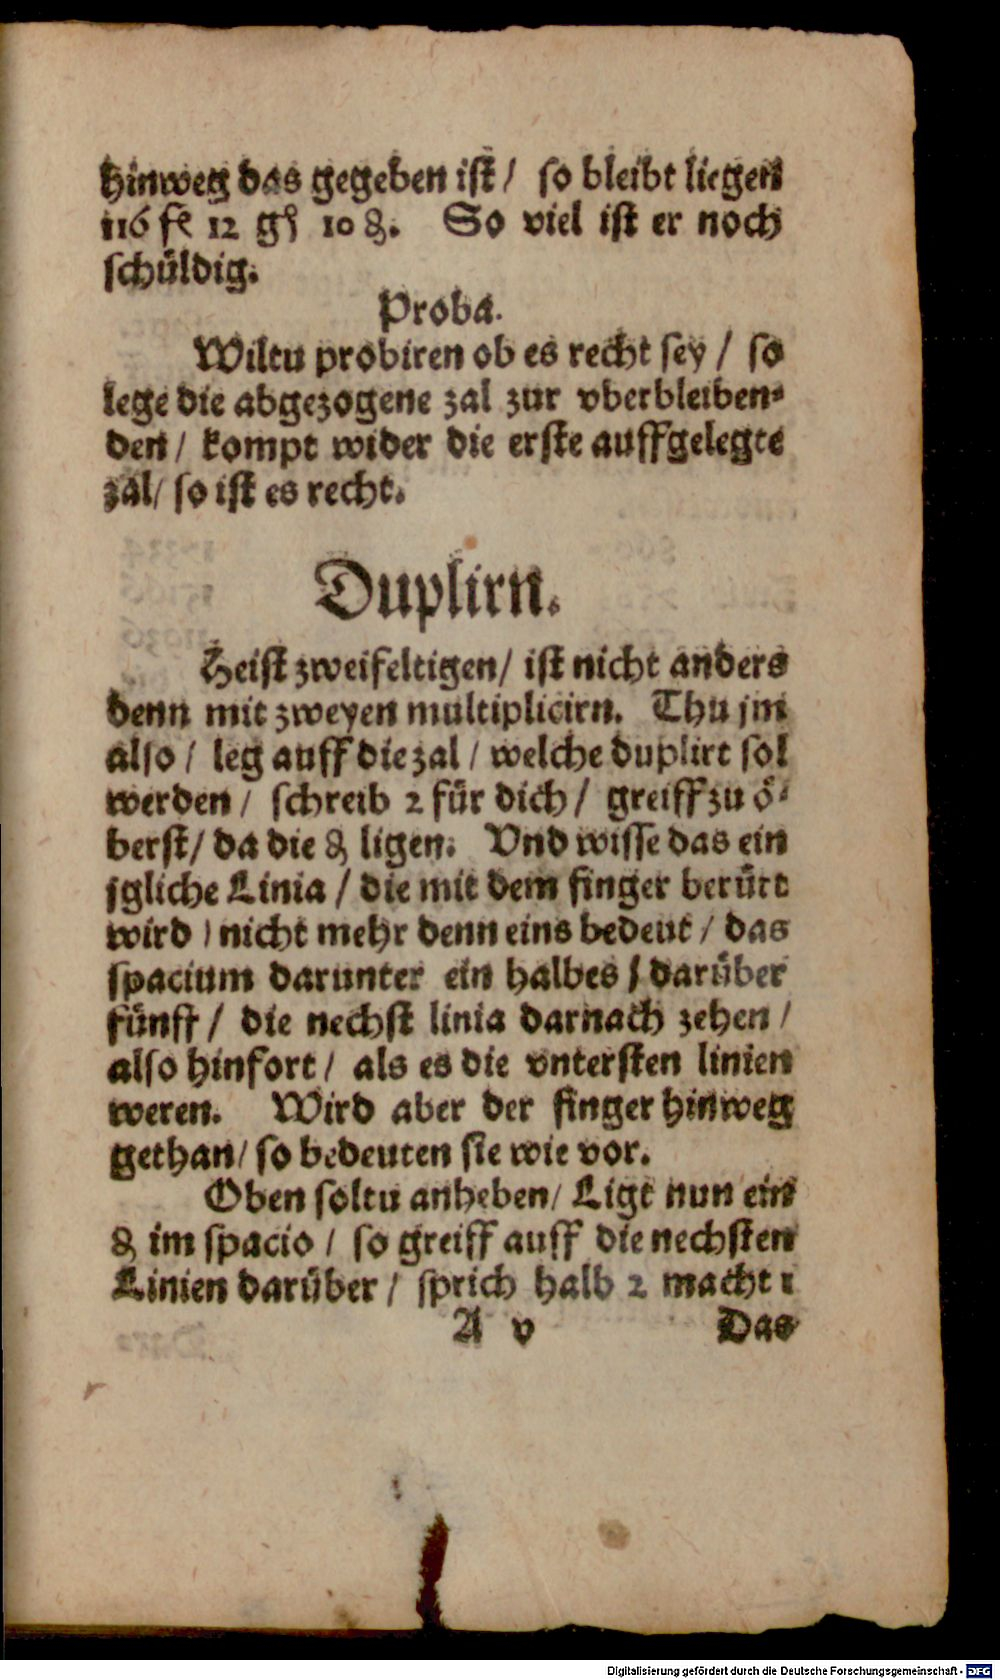 hinweg das gegeben ist / so bleibt liegen
116 fl 12 gſ 10 ₰. So viel ist er noch
schüldig.
Proba.
Wiltu probiren ob es recht sey / so
lege die abgezogene zal zur vberbleiben⸗
den / kompt wider die erste auffgelegte
zal / so ist es recht.
Duplirn.
Heist zweifeltigen / ist nicht anders
denn mit zweyen multiplicirn. Thu jm
also / leg auff die zal / welche duplirt sol
werden / schreib 2 für dich / greiff zu ö⸗
berst / da die ₰ ligen. Vnd wisse das ein
jgliche Linia / die mit dem finger berürt
wird / nicht mehr denn eins bedeut / das
spacium darunter ein halbes / darüber
fünff / die nechst linia darnach zehen /
also hinfort / als es die vntersten linien
weren. Wird aber der finger hinweg
gethan / so bedeuten sie wie vor.
Oben soltu anheben / Ligt nun ein
₰ im spacio / so greiff auff die nechsten
Linien darüber / sprich halb 2 macht 1
A v Das
Digitalisierung gefördert durch die Deutsche Forschungsgemeinschaft - DFG